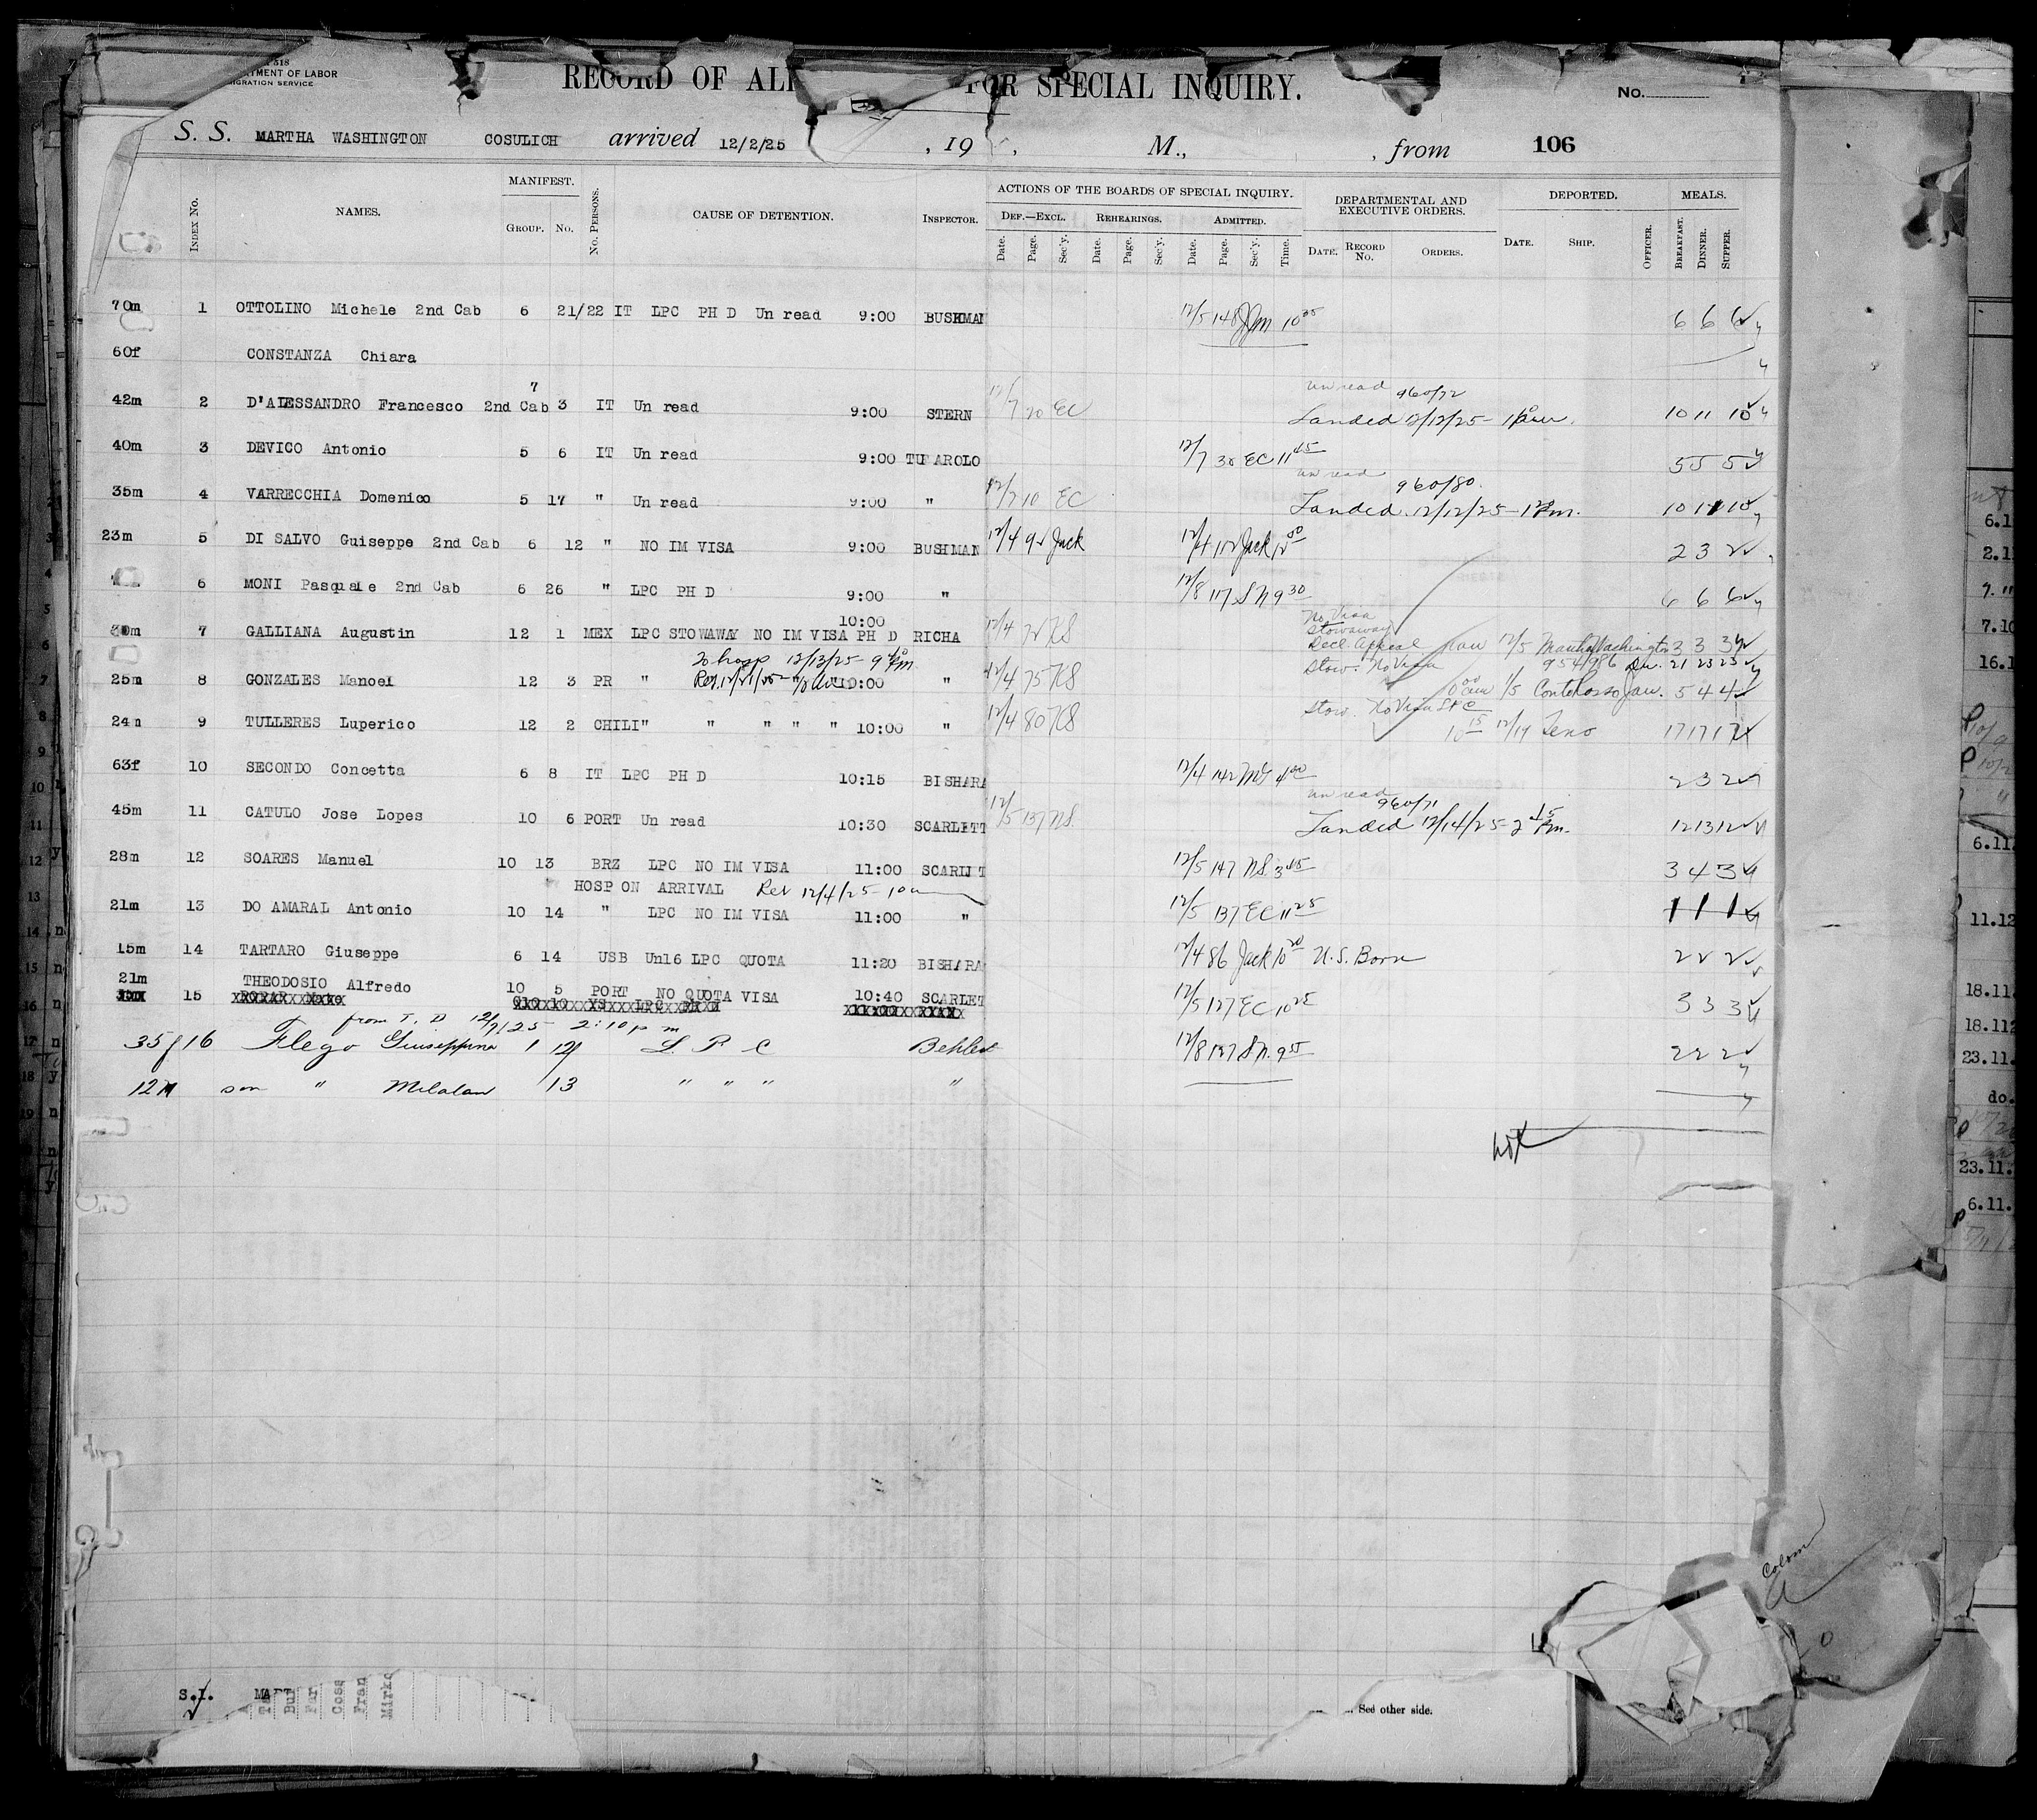 518
RTMENT OF LABOR
MIGRATION SERVICE
RECORD OF ALI FOR SPECIAL INQUIRY.
No.
S. S. MARTHA WASHINGTON COSULICH arrived 12/2/25 , 19 , M., , from 106
INDEX No. NAMES. MANIFEST. GROUP. No. No. PERSONS. CAUSE OF DETENTION. INSPECTOR. ACTIONS OF THE BOARDS OF SPECIAL INQUIRY. DEF.—EXCL. REHEARINGS. ADMITTED. DEPARTMENTAL AND EXECUTIVE ORDERS. DEPORTED. MEALS.
Date. Page. Sec'y. Date. Page. Sec'y. Date. Page. Sec'y. Time. DATE. RECORD No. ORDERS. DATE. SHIP. OFFICER. BREAKFAST. DINNER. SUPPER.
70m 1 OTTOLINO Michele 2nd Cab 6 21/22 IT LPC PH D Un read 9:00 BUSHMAN 12/5 148 10 6 6 6
60f CONSTANZA Chiara
42m 2 D'ALESSANDRO Francesco 2nd Cab 7 3 IT Un read 9:00 STERN 12/7 20 EC un read 960/72 Landed 12/12/25 10 11 10
40m 3 DEVICO Antonio 5 6 IT Un read 9:00 TUFAROLO 12/7 30 EC 11 45 5 5 5
35m 4 VARRECCHIA Domenico 5 17 " Un read 9:00 " 12/7 10 EC un read 960/80. Landed 12/12/25 10 11 10
23m 5 DI SALVO Guiseppe 2nd Cab 6 12 " NO IM VISA 9:00 BUSHMAN 12/4 92 Jack 12/4 112 Jack 12 00 2 3 2
6 MONI Pasquale 2nd Cab 6 26 " LPC PH D 9:00 " 12/8 117 S N 9 30 6 6 6
30m 7 GALLIANA Augustin 12 1 MEX LPC STOWAWAY NO IM VISA PH D 10:00 RICHA 12/4 72 KS No Visa Stowaway Decl. Appeal 12/5 Martha Washington 3 3 3
To hosp 12/13/25 - 9 PM.
25m 8 GONZALES Manoel 12 3 PR " 10:00 " 12/4 75 KS Stow. No Visa 954/986 21 23 23
1/5 Conte Rosso Jan. 5 4 4
24m 9 TULLERES Luperico 12 2 CHILI " " " " " 10:00 " 12/4 80 KS Stow. No Visa LPC 10 15 12/19 Teno 17 17 17
63f 10 SECONDO Concetta 6 8 IT LPC PH D 10:15 BISHARA 12/4 142 4 00 2 3 2
45m 11 CATULO Jose Lopes 10 6 PORT Un read 10:30 SCARLETT 12/5 137 NS. un read 960/71 Landed 12/14/25 - 2 45 Pm. 12 13 12
28m 12 SOARES Manuel 10 13 BRZ LPC NO IM VISA 11:00 SCARLTT 12/5 147 NS 3 45 3 4 3
HOSP ON ARRIVAL Rev 12/4/25 - 10 am
21m 13 DO AMARAL Antonio 10 14 " LPC NO IM VISA 11:00 " 12/5 137 EC 11 25 1 1 1
15m 14 TARTARO Giuseppe 6 14 USB Un16 LPC QUOTA 11:20 BISHARA 12/4 86 Jack 10 20 U.S. Born 2 2 2
21m 15 THEODOSIO Alfredo 10 5 PORT NO QUOTA VISA 10:40 SCARLET 12/5 127 EC 10 25 3 3 3
from T. D 12/7/25 2:10 p m
35f 16 Flego Giuseppina 1 12 L P C 12/8 137 S N. 9 55 2 2 2
12m son " 13 " " " "
S.I.
Bu
Far
Coss
Fran
Mirko
See other side.
Colom